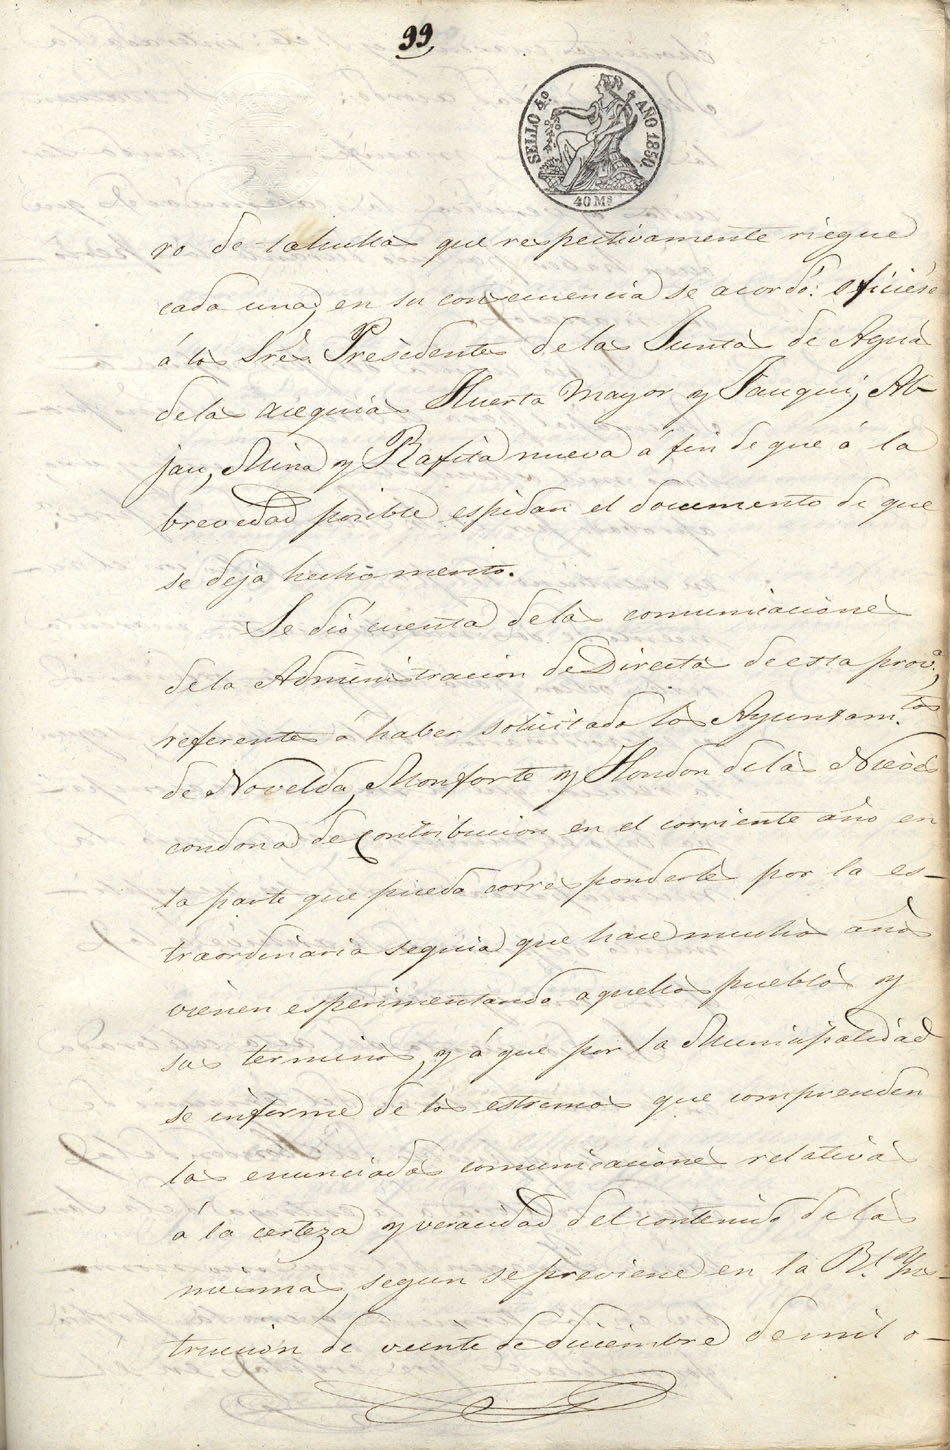 99
SELLO 4.º AÑO 1850.
40 Ms
ro de tahullas que respectivamente riegue
cada una, en su consecuencia se acordó: oficiese
á los Sres. Presidentes de las Juntas de Aguas
de las acequias Huerta Mayor y Fauqui, Al-
jau, Mina y Rafica nueva á fin de que á la
brevedad posible espidan el documento de que
se deja hecho merito.
Se dió cuenta de las comunicaciones
de la Administracion de Directas de esta prov.ª,
referentes á haber solicitado los Ayuntam.tos
de Novelda, Monforte y Hondon de las Nieves
condona de Contribucion en el corriente año en
la parte que pueda corresponderles por la es-
traordinaria sequia que hace muchos años
vienen esperimentando aquellos pueblos y
sus terminos, y á que por la Municipalidad
se informe de los estremos que comprenden
las enunciadas comunicaciones relativas
á la certeza y veracidad del contenido de las
mismas, segun se previene en la Rl. Yns-
truccion de veinte de diciembre de mil o-